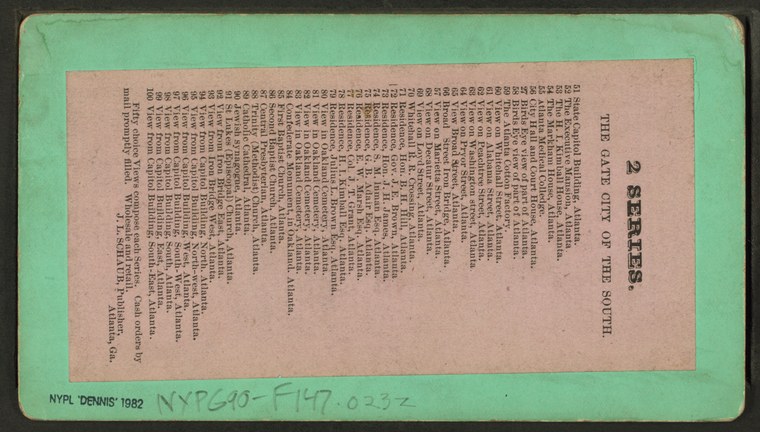 2 SERIES.
THE GATE CITY OF THE SOUTH.
51 State Capitol Building, Atlanta.
52 The Executive Mansion, Atlanta
53 The H. I. Kimball House, Atlanta.
54 The Markham House, Atlanta.
55 Atlanta Medical Colledge.
56 City Hall and Court House, Atlanta.
27 Birds Eye view of part of Atlanta.
58 Birds Eye view of part of Atlanta.
59 The Atlanta Cotton Factory.
60 View on Whitehall Street, Atlanta.
61 View on Alabama Street, Atlanta.
62 View on Street, Atlanta.
63 View on Washington street, Atlanta
64 View on Pryor Street, Atlanta.
65 View Broad Street, Atlanta.
66 Broad Street from Bridge, Atlanta.
67 View on Marietta Street, Atlanta.
68 View on Decatur Street, Atlanta.
69 View on Street, Atlanta.
70 Whitehall R. R. Crossing, Atlanta.
71 Residence, Hon. B. H. Hill, Atlanta.
72 Residence, Atlanta
73 Residence, Hon. J. H. James, Atlanta.
74 Residence, S. M. Inman, Esq., Atlanta.
75 Residence, Esq., Atlanta.
76 Residence, E. W. Marsh Esq., Atlanta.
77 Residence, Col. J. T. Grant, Atlanta.
78 Residence, H. I. Kimball Esq., Atlanta.
79 Residence, Julius L. Brown Esq., Atlanta.
80 View in Oakland Cemetery, Atlanta.
81 View in Oakland Cemetery, Atlanta.
82 View in Oakland Cemetery, Atlanta.
83 View in Oakland Cemetery, Atlanta.
84 Confederate Monument, in Oakland. Atlanta.
85 First Baptist Church, Atlanta.
86 Second Baptist Church, Atlanta.
87 Central Presbyterian, Atlanta.
88 Trinity Methodist Church, Atlanta.
89 Catholic Cathedral, Atlanta.
90 Jewish Synagogue, Atlanta.
91 St. Lukes (Episcopal) Church, Atlanta.
92 View from Iron Bridge East, Atlanta.
93 View from Iron Bridge West, Atlanta.
94 View from Capitol Building, North, Atlanta.
95 View from Capitol Building, North-west, Atlanta.
96 View from Capitol Building, West, Atlanta.
97 View from Capitol Building, South-West, Atlanta.
98 View from Capitol Building, South, Atlanta.
99 View from Capitol Building, East, Atlanta.
100 View from Capitol Building, South-East, Atlanta.
Fifty choice Views compose each Series. Cash orders by
mail promptly filled. Wholesale and retail.
J. L. SCHAUB, Publisher,
Atlanta, Ga.
NYPL 'DENNIS' 1982
NYPG90-F147.023z